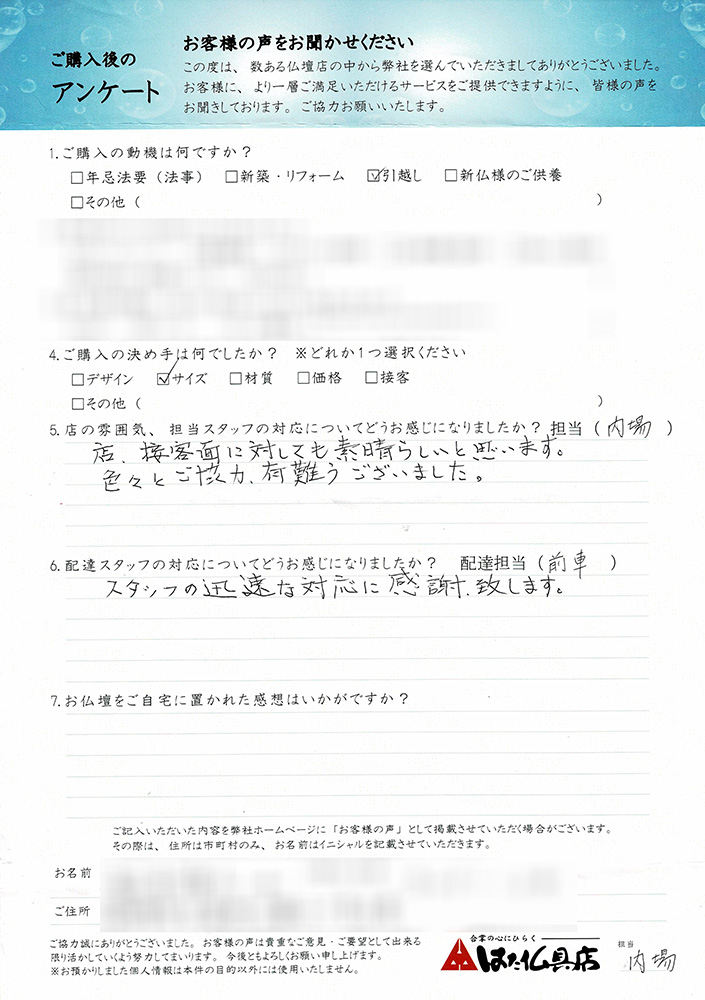 ご購入後の
アンケート
お客様の声をお聞かせください
この度は、数ある仏壇店の中から弊社を選んでいただきましてありがとうございました。
お客様に、より一層ご満足いただけるサービスをご提供できますように、皆様の声を
お聞きしております。ご協力お願いいたします。
1.ご購入の動機は何ですか？
□年忌法要（法事） □新築・リフォーム ☑引越し □新仏様のご供養
□その他（ ）
4.ご購入の決め手は何でしたか？ ※どれか1つ選択ください
□デザイン ☑サイズ □材質 □価格 □接客
□その他（ ）
5.店の雰囲気、担当スタッフの対応についてどうお感じになりましたか？ 担当（内場）
店、接客面に対しても素晴らしいと思います。
色々とご協力、有難うございました。
6.配達スタッフの対応についてどうお感じになりましたか？ 配達担当（前車）
スタッフの迅速な対応に感謝致します。
7.お仏壇をご自宅に置かれた感想はいかがですか？
ご記入いただいた内容を弊社ホームページに「お客様の声」として掲載させていただく場合がございます。
その際は、住所は市町村のみ、お名前はイニシャルを記載させていただきます。
お名前
ご住所
ご協力誠にありがとうございました。お客様の声は貴重なご意見・ご要望として出来る
限り活かしていくよう努力してまいります。今後ともよろしくお願い申し上げます。
※お預かりしました個人情報は本件の目的以外には使用いたしません。
合掌の心にひらく
はた仏具店
担当
内場